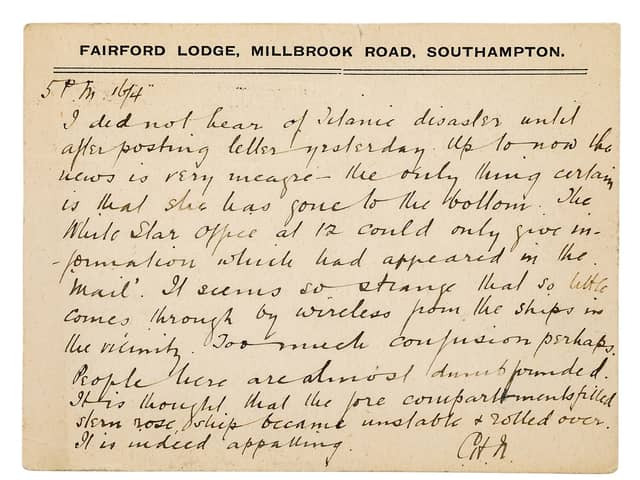 FAIRFORD LODGE, MILLBROOK ROAD, SOUTHAMPTON.
5 P.M 16/4
I did not hear of Titanic disaster until
after posting letter yesterday. Up to now the
news is very meagre – the only thing certain
is that she has gone to the bottom. The
White Star Office at 12 could only give in-
-formation which had appeared in the
'Mail'. It seems so strange that so little
comes through by wireless from the ships in
the vicinity. Too much confusion perhaps.
People here are almost dumbfounded.
It is thought that the fore compartments filled
stern rose, ship became unstable & rolled over.
It is indeed appalling.